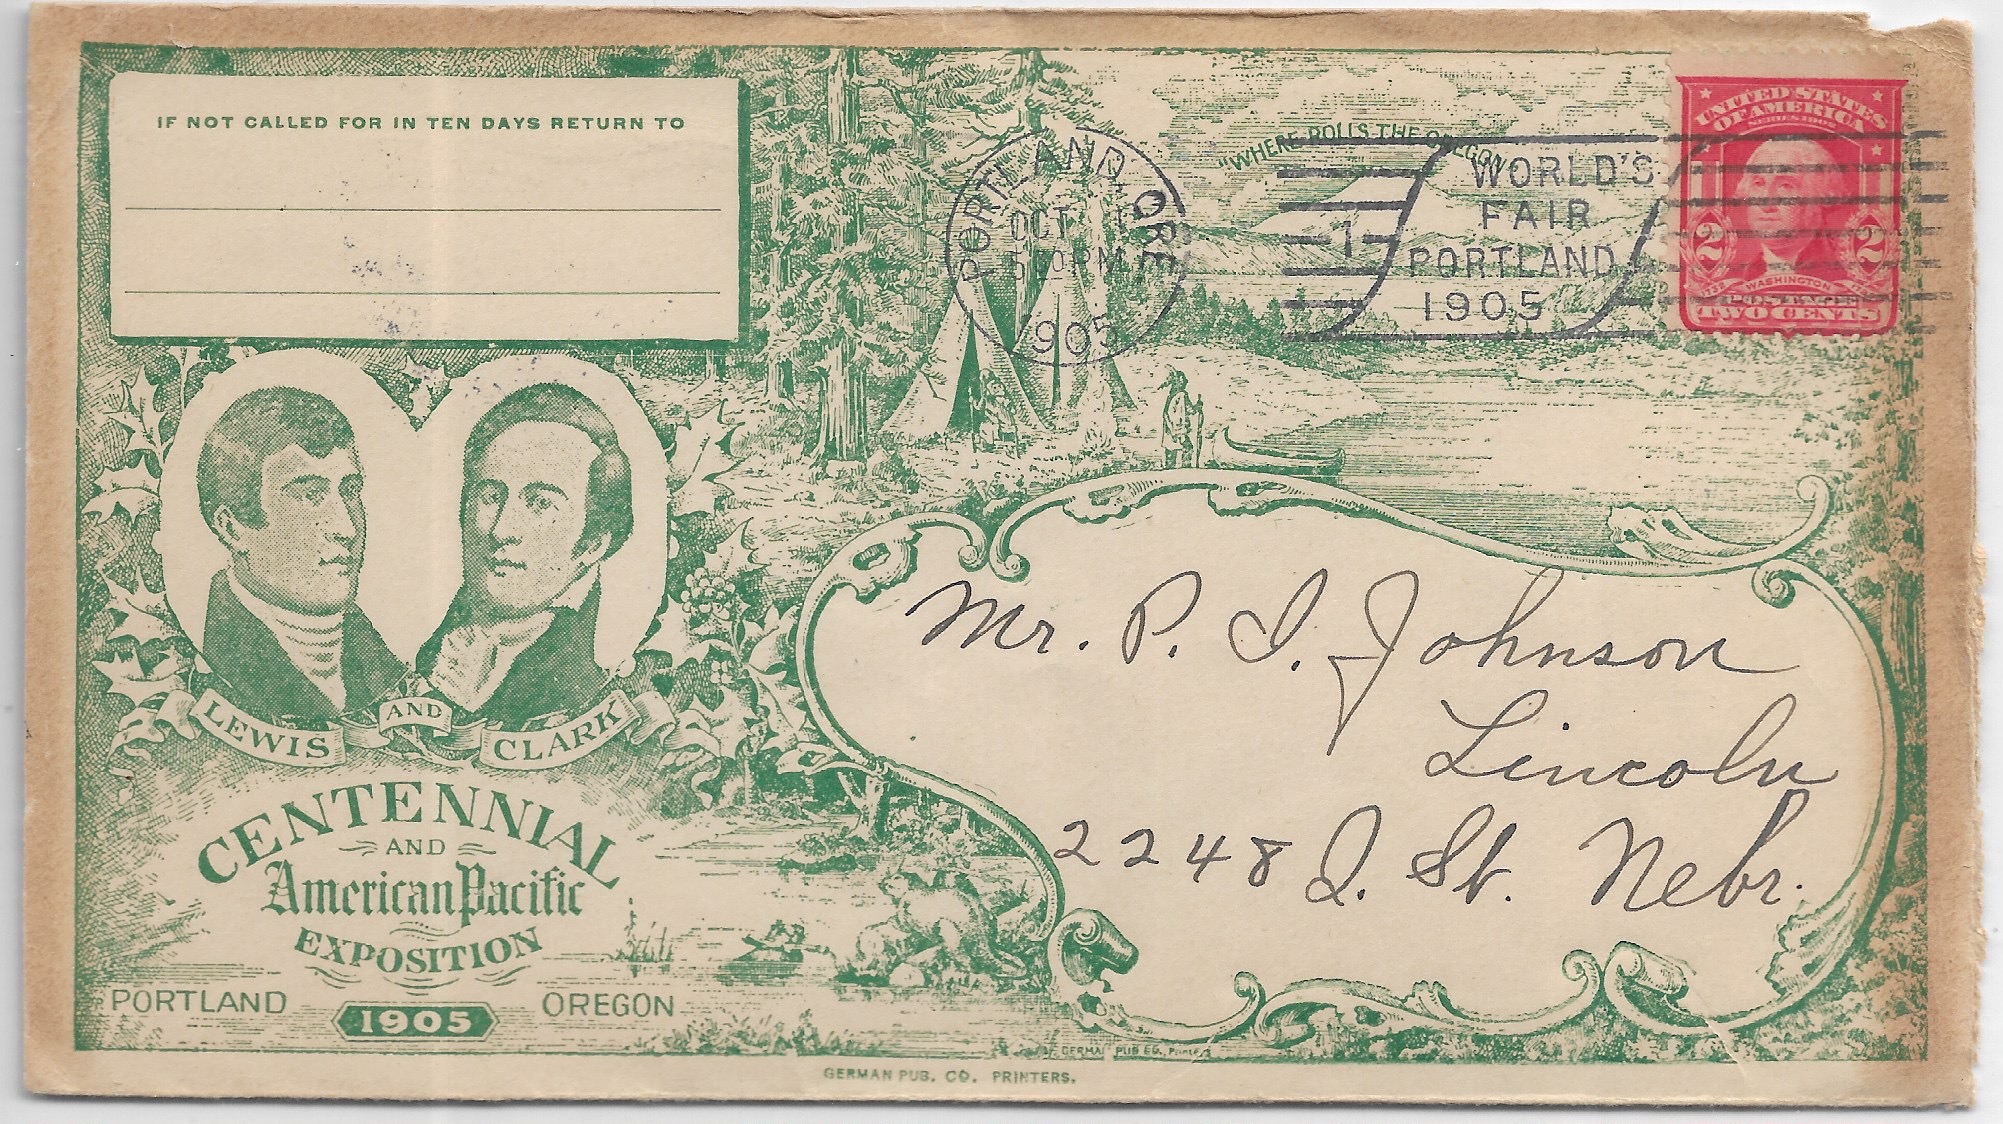 IF NOT CALLED FOR IN TEN DAYS RETURN TO
"WHERE ROLLS THE OREGON
PORTLAND, ORE
OCT 1
5 30 PM
1905
1
WORLD'S
FAIR
PORTLAND
1905
UNITED STATES
OF AMERICA
SERIES 1902
2 2
WASHINGTON
POSTAGE
TWO CENTS
LEWIS AND CLARK
CENTENNIAL
AND
American Pacific
EXPOSITION
PORTLAND 1905 OREGON
Mr. P. I. Johnson
Lincoln
2248 Q. St. Nebr.
GERMAN PUB. CO. PRINTERS.